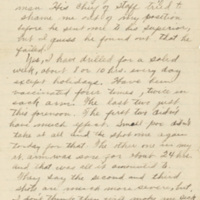 man. His chief of staff tried to
shame me out of my position
before he sent me to his superior,
but I guess he found me that he
failed.
Yes, I have drilled for a solid
week, about 8 or 10 hrs every day
except holidays. Have been
vaccinated four times, twice in
each arm. The last two just
this forenoon. The first two didn't
have much effect. Small pox didn't
take at all and he shot me again
today for that. The other one in my
rt. arm was sore for about 24 hrs
and that was all it amounted to.
They say the second and third
shots are more severe, but
I don't think they will make me sick